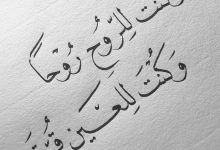 كُنْتَ لِلرُّوحِ رُوْحًا
وَكُنْتَ لِلْعَيْنِ